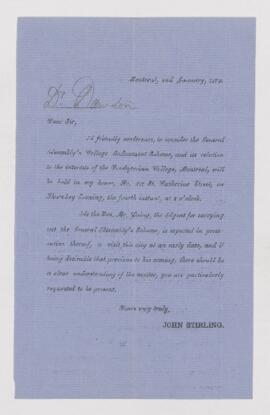 Montreal, 2nd January, 187
Dr. Dawson
Dear Sir,
A friendly conference, to consider the General
Assembly's College Endowment Scheme, and its relation
to the interests of the Presbyterian College, Montreal, will
be held in my house, No. St. Catherine Street, on
Thursday Evening, the fourth instant, at 8 o'clock.
As the Rev. Mr. Laing, the Agent for carrying
out the General Assembly's Scheme, is expected in prose-
cution thereof, to visit this city at an early date, and it
being desirable that previous to his coming, there should be
a clear understanding of the matter, you are particularly
requested to be present.
Yours very truly,
JOHN STIRLING.